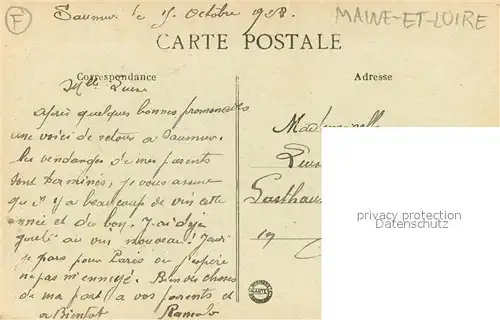 F
Saumur le 15 Octobre 1928.
MAINE-ET-LOIRE
CARTE POSTALE
Correspondance
Adresse
Mlle
Après quelques bonnes promenades
me voici de retour a Saumur.
les vendanges de mes parents
sont terminés, je vous assure
qu'il y a beaucoup de vin cette
année et du bon. J'ai déja
gouté au vin nouveau! Jeudi
je pars pour Paris ou j'espère
ne pas m'ennuyé. Bien des choses
de ma part a vos parents et
a Bientot
Mademoiselle
Gasthaus
19
privacy protection
Datenschutz
CARTE